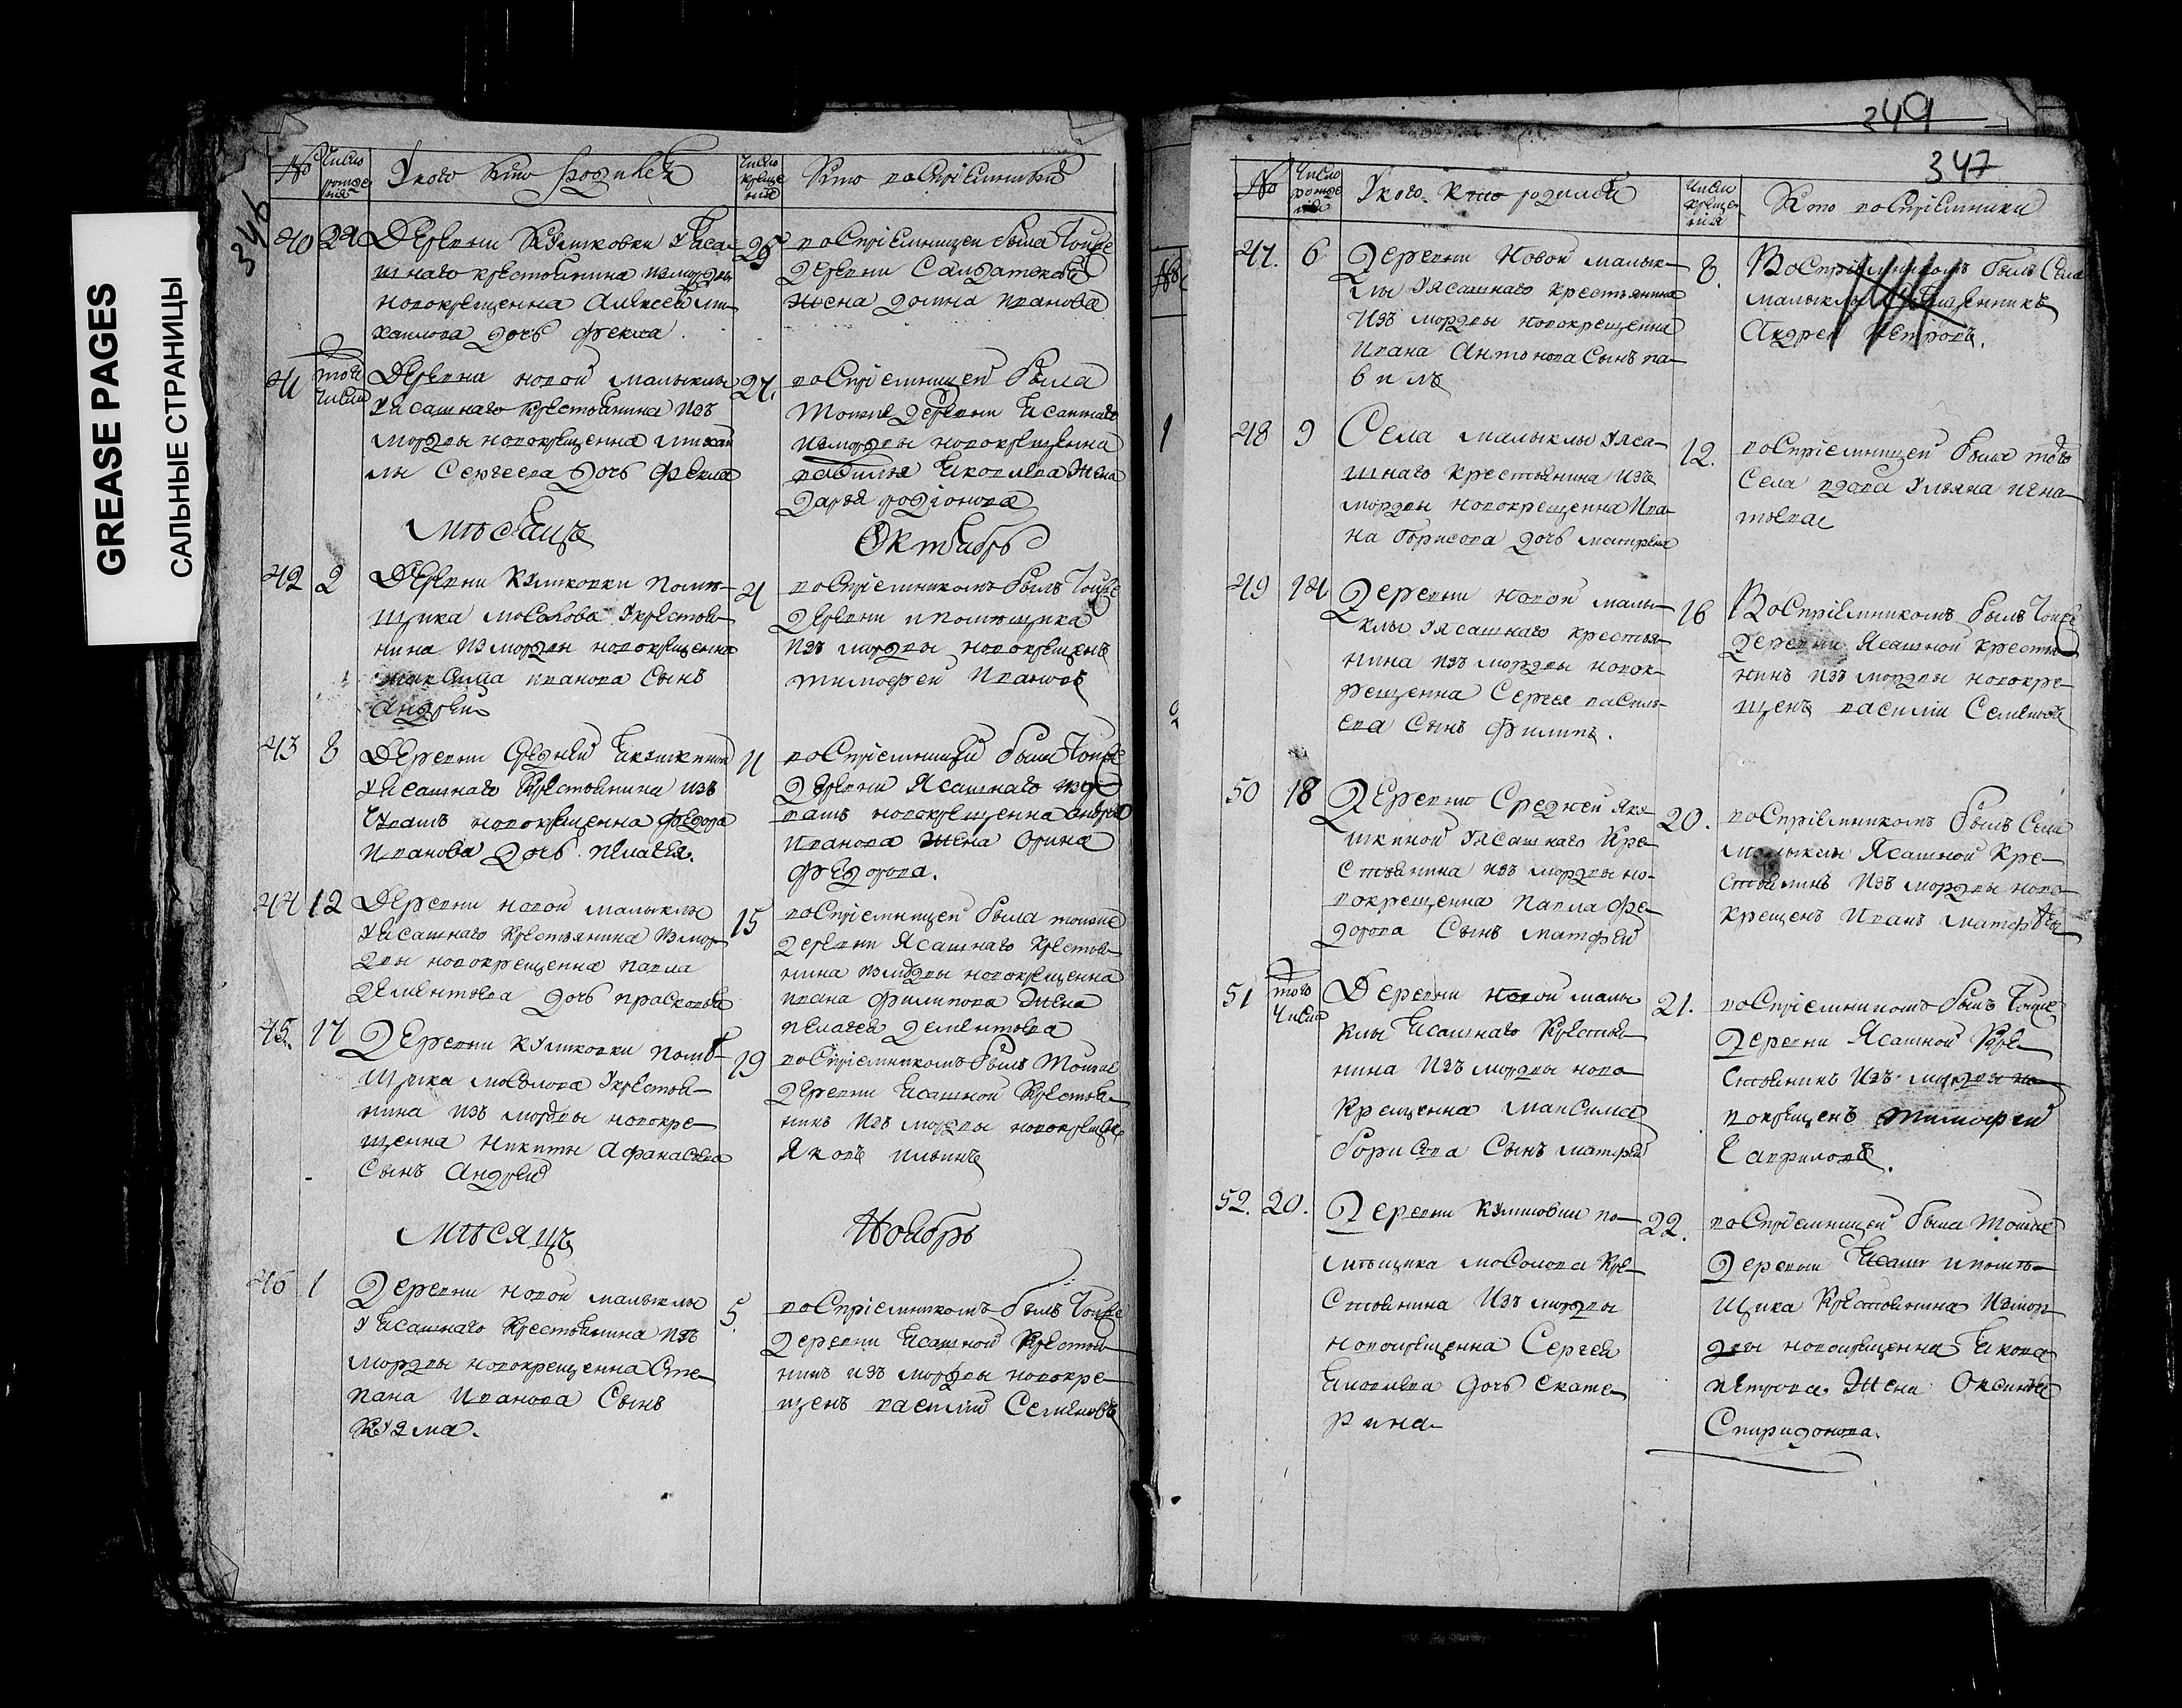 GREASE PAGES
САЛЬНЫЕ СТРАНИЦЫ
346
№
Число рожде ния
У кого кто родился
Число креще ния
Кто восприемники
40
24
Деревни Куликовки уяса-
шнаго крестьянина измордвы
новокрещенна Алексея ми-
хаилова дочь Фекла
восприемницеи была тоиже
деревни
жена иванова
41
того числа
Деревни новой малыклы
уясашнаго крестьянина изъ
мордвы новокрещенна михаи
лы Сергеева дочь Фекла
27.
восприемницей была
тоиже деревни ясашнаго
измордвы новокрещенна
василья яковлева жена
дарья родіонова
Мѣсяцъ
Октябрь
42
2
Деревни куликовки помѣ-
щика мосолова укрестья-
нина измордвы новокрещенна
максима иванова сынъ
андрей
4
восприемникомъ былъ тоиже
деревни ипомещика
изъ мордвы новокрещенъ
тимофеи Ивановъ
43
8
Деревни средней якушкиной
уясашнаго крестьянина изъ
чувашъ новокрещенна федора
иванова дочь пелагея.
11
восприемницеи была тоиже
деревни Ясашнаго изчу
вашъ новокрещенна андрея
иванова жена орина
федорова.
44
12
Деревни новой малыклы
уясашнаго крестьянина измор
двы новокрещенна павла
дементьева дочь прасковья
15
восприемницей была тоиже
деревни Ясашнаго крестья-
нина измордвы новокрещенна
ивана филипова жена
пелагея дементьева
45.
17
Деревни куликовки помѣ-
щика мосолова укрестья-
нина изъ мордвы новокре-
щенна никиты афанасьева
сынъ андрей
19
восприемникомъ былъ тоиже
деревни ясашной крестья-
нинъ изъ мордвы новокрещен
Яковъ ильинъ
мѣсяцъ
Ноябрь
46
1
Деревни новой малыклы
уясашнаго крестьянина изъ
мордвы новокрещенна Сте-
пана Иванова сынъ
кузма.
5.
восприемникомъ былъ тоиже
деревни ясашной крестья-
нинъ изъ мордвы новокре-
щенъ василий Семеновъ
349
347
№
Число рожде ния
У кого кто родился
Число креще ния
Кто восприемники
47.
6
Деревни Новой малык-
лы уясашнаго крестьянина
изъ мордвы новокрещенна
ивана Антонова сынъ па-
велъ
8.
Восприемникомъ былъ Села
малыклы священникъ
Андрей Петровъ.
48
9
Села малыклы уяса-
шнаго крестьянина изъ
мордвы новокрещенна Ива-
на борисова дочь матрена
12.
восприемницей была того
Села вдова ульяна игна-
тьева
49
14
Деревни новой малы-
клы уясашнаго крестья-
нина изъ мордвы новок-
рещенна Сергея василь-
ева сынъ филипъ.
16
Восприемникомъ былъ тоиже
деревни Ясашной крестья
нинъ изъ мордвы новокре-
щенъ василий Семеновъ
50
18
Деревни Средней яку-
шкиной уясашнаго кре-
стьянина изъ мордвы но-
вокрещенна павла фе-
дорова сынъ матфей
20.
восприемникомъ былъ Села
малыклы Ясашной кре-
стьянинъ изъ мордвы ново-
крещенъ Иванъ матфѣевъ
51
того числа
Деревни новой малы
клы ясашнаго крестья-
нина изъ мордвы ново-
крещенна максима
борисова сынъ матфей
21.
восприемникомъ былъ тоиже
деревни Ясашной кре-
стьянинъ изъ мордвы но-
вокрещенъ тимофей
Гавриловъ.
52.
20.
Деревни куликовки по-
мѣщика мосолова кре-
стьянина изъ мордвы
новокрещенна Сергея
яковлева дочь екате-
рина
22.
восприемницей была тоиже
деревни ясаш ипомѣ-
щика крестьянина измор-
двы новокрещенна якова
петрова жена Оксинья
Спиридонова.